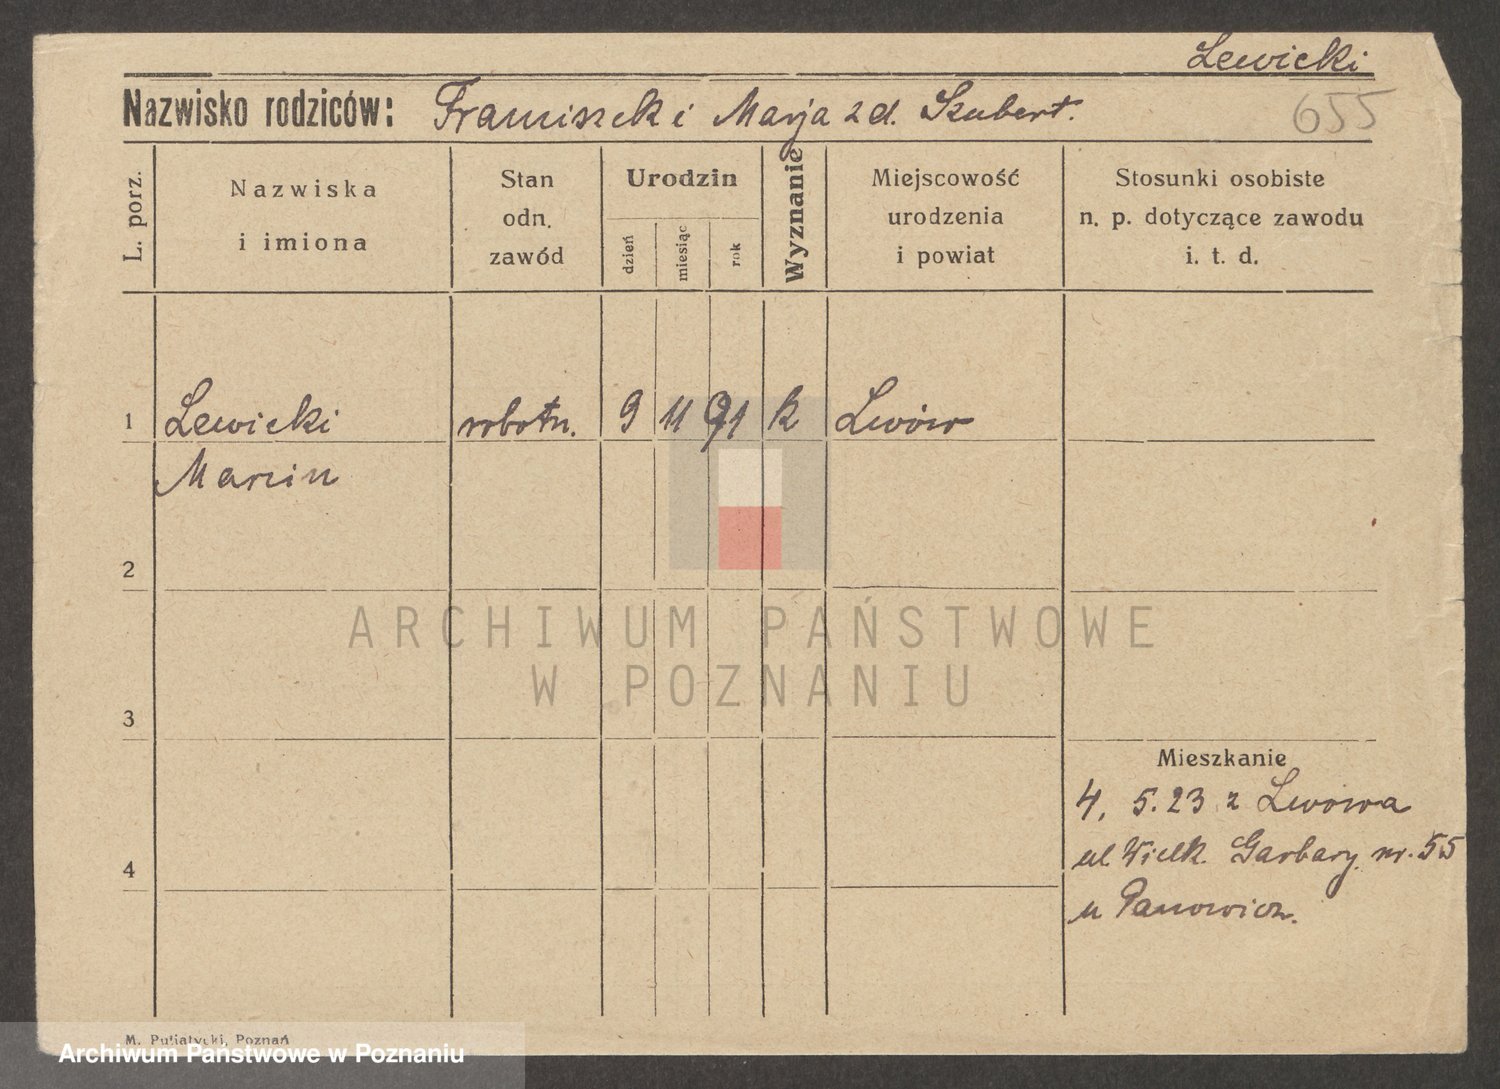 Lewicki
Nazwisko rodziców: Franciszek i Marja z d. Szubert.
655
L. porz.
Nazwiska
i imiona
Stan
odn.
zawód
Urodzin
dzień
miesiąc
rok
Wyznanie
Miejscowość
urodzenia
i powiat
Stosunki osobiste
n. p. dotyczące zawodu
i. t. d.
1 Lewicki robotn. 9 11 91 k Lwów
Marcin
2
3
4
Mieszkanie
4. 5. 23 z Lwowa
ul. Wielk. Garbary nr. 55
u Panowicz.
M. Putiatycki, Poznań
ARCHIWUM PAŃSTWOWE
W POZNANIU
Archiwum Państwowe w Poznaniu